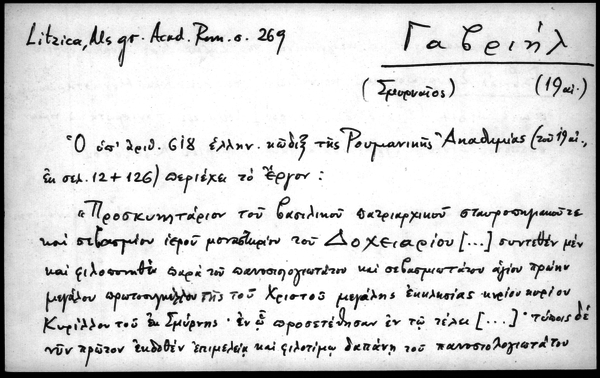 Litzica, Ms gr. Acad. Rom. σ. 269
Γαβριήλ
(Σμυρναῖος) (19 αἰ.)
Ὁ ὑπ' ἀριθ. 618 ἑλλην. κῶδιξ τῆς Ρουμανικῆς Ἀκαδημίας (τοῦ 19 αἰ.,
ἐκ σελ. 12 + 126) περιέχει τὸ ἔργον :
«Προσκυνητάριον τοῦ βασιλικοῦ πατριαρχικοῦ σταυροπηγιακοῦ τε
καὶ σεβασμίου ἱεροῦ μοναστηρίου τοῦ Δοχειαρίου [...] συντεθὲν μὲν
καὶ φιλοπονηθὲν παρὰ τοῦ πανοσιολογιωτάτου καὶ σεβασμιωτάτου ἁγίου πρώην
μεγάλου πρωτοσυγκέλλου τῆς τοῦ Χριστοῦ μεγάλης ἐκκλησίας κυρίου κυρίου
Κυρίλλου τοῦ ἐκ Σμύρνης · ἐν ᾧ προσετέθησαν ἐν τῷ τέλει [...] · τύποις δὲ
νῦν πρῶτον ἐκδοθὲν ἐπιμελείᾳ καὶ φιλοτίμῳ δαπάνῃ τοῦ πανοσιολογιωτάτου